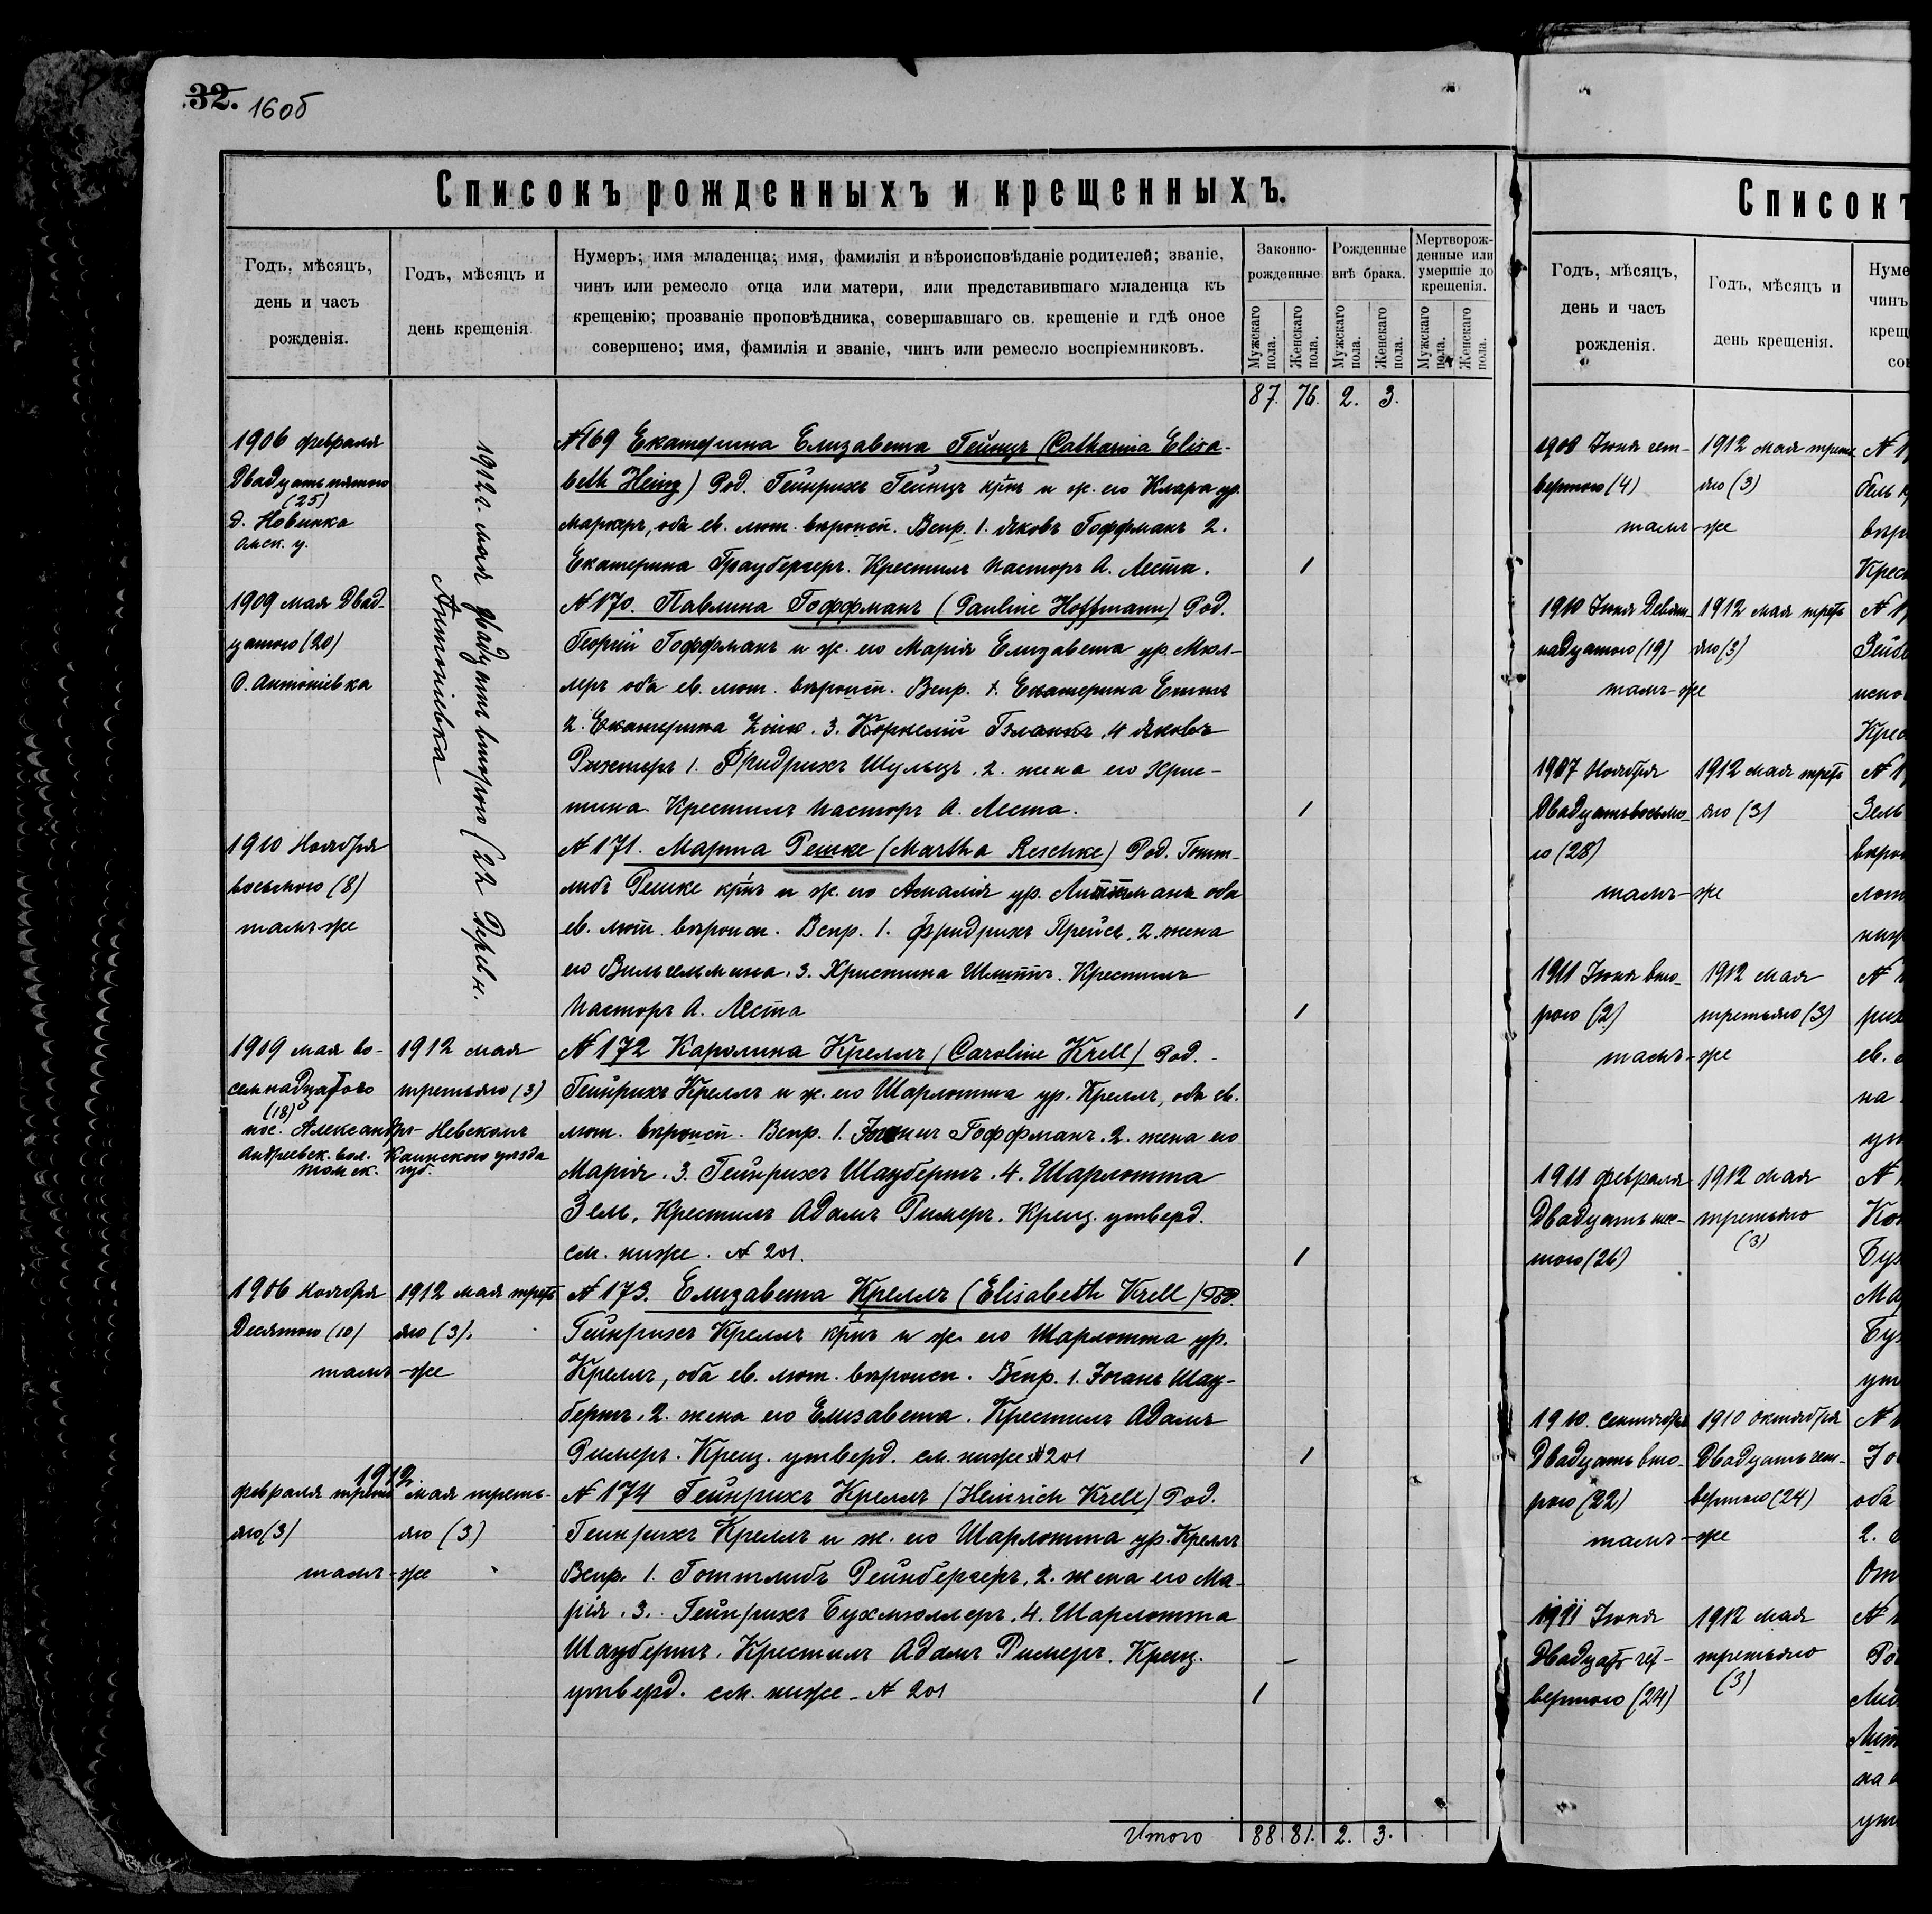 32. 16об
Списокъ рожденныхъ и крещенныхъ.
Годъ, мѣсяцъ,
день и часъ
рожденія.
Годъ, мѣсяцъ и
день крещенія
Нумеръ; имя младенца; имя, фамилія и вѣроисповѣданіе родителей; званіе,
чинъ или ремесло отца или матери, или представившаго младенца къ
крещенію; прозваніе проповѣдника, совершавшаго св. крещеніе и гдѣ оное
совершено; имя, фамилія и званіе, чинъ или ремесло воспріемниковъ.
Законно-
рожденные
Рожденные
внѣ брака.
Мертворож-
денные или
умершіе до
крещенія.
Мужскаго пола.
Женскаго пола.
Мужскаго пола.
Женскаго пола.
Мужскаго пола.
Женскаго пола.
87. 76. 2. 3.
1906 февраля
Двадцать пятого
(25)
д. Новинка
Омск. у.
1912 г. мая двадцать второго (22 Дерев н.
Антоніевка
№169 Екатерина Елизавета Гейнцъ (Catharina Elisa-
beth Heinz) Род. Гейнрихъ Гейнцъ кр̄нъ и ж. его Клара ур.
Маркеръ, оба ев. лют. вѣроисп. Вспр. 1. Яковъ Гоффманъ 2.
Екатерина Браубергеръ. Крестилъ Пасторъ А. Леста. 1
1909 мая Двад-
цатого (20)
д. Антоніевка
№170. Павлина Гоффманъ (Pauline Hoffmann) Род.
Георгій Гоффманъ и ж. его Марія Елизавета ур. Мюл-
леръ оба ев. лют. вѣроисп. Вспр. 1. Екатерина
2. Екатерина . 3. Корнелій . 4 Яковъ
Рихтеръ 1. Фридрихъ Шульцъ . 2. жена его Хрис-
тина Крестилъ Пасторъ А. Леста. 1
1910 Ноября
восьмого (8)
тамъ же
№171. Марта Решке (Martha Reschke) Род. Готт-
либъ Решке кр̄нъ и ж. его Амалія ур. Литтманъ оба
ев. лют. вѣроисп. Вспр. 1. Фридрихъ Прейсъ. 2. жена
его Вильгельмина. 3. Христина Шмитъ. Крестилъ
Пасторъ А. Леста 1
1909 мая во-
семнадцатого
(18)
1912 мая
третьяго (3)
пос. Александръ-Невскомъ
Андреевск. вол. Каинского уѣзда
томск. губ.
№172 Каролина Креллъ (Caroline Krell) Род.
Гейнрихъ Креллъ и ж. его Шарлотта ур. Креллъ, оба ев.
лют. вѣроисп. Вспр. 1. Гоффманъ. 2. жена его
Марія. 3. Гейнрихъ Шаубертъ. 4. Шарлотта
Зель. Крестилъ Адамъ Римеръ. Крещ. утверд.
см. ниже. № 201. 1
1906 Ноября
Десятого (10)
1912 мая треть
яго (3).
тамъ-же
№173. Елизавета Креллъ (Elisabeth Krell) Род.
Гейнрихъ Креллъ кр̄нъ и ж. его Шарлотта ур.
Креллъ, оба ев. лют. вѣроисп. Вспр. 1. Іоганъ Шау-
бертъ. 2. жена его Елизавета. Крестилъ Адамъ
Римеръ. Крещ. утверд. см. ниже № 201 1
1912.
февраля треть
яго (3)
мая треть-
яго (3)
тамъ-же
№174 Гейнрихъ Креллъ (Heinrich Krell) Род.
Гейнрихъ Креллъ и ж. его Шарлотта ур. Креллъ
Вспр. 1. Готтлибъ Рейнбергеръ. 2. жена его Ма-
рія. 3. Гейнрихъ Бухмюллеръ. 4. Шарлотта
Шаубертъ. Крестилъ Адамъ Римеръ. Крещ.
утверд. см. ниже - № 201 1
Итого 88 81. 2. 3.
Списокъ
Годъ, мѣсяцъ,
день и часъ
рожденія.
Годъ, мѣсяцъ и
день крещенія.
Нуме
чинъ
крещ
со
1908 Іюня чет-
вертого (4)
1912 мая треть
яго (3)
тамъ-же
1910 Іюня Девят-
надцатого (19)
1912 мая треть
яго (3)
тамъ-же
1907 Ноября
Двадцатьвосьмо-
го (28)
1912 мая треть
яго (3)
тамъ-же
1911 Іюня вто-
рого (2)
1912 мая
третьяго (3)
тамъ-же
1911 февраля
Двадцать шес-
того (26)
1912 мая
третьяго
(3)
1910. Сентября
Двадцать вто-
рого (22)
1910 Октября
Двадцать чет-
вертого (24)
тамъ-же
1911 Іюня
Двадцать чет-
вертого (24)
1912 мая
третьяго
(3)